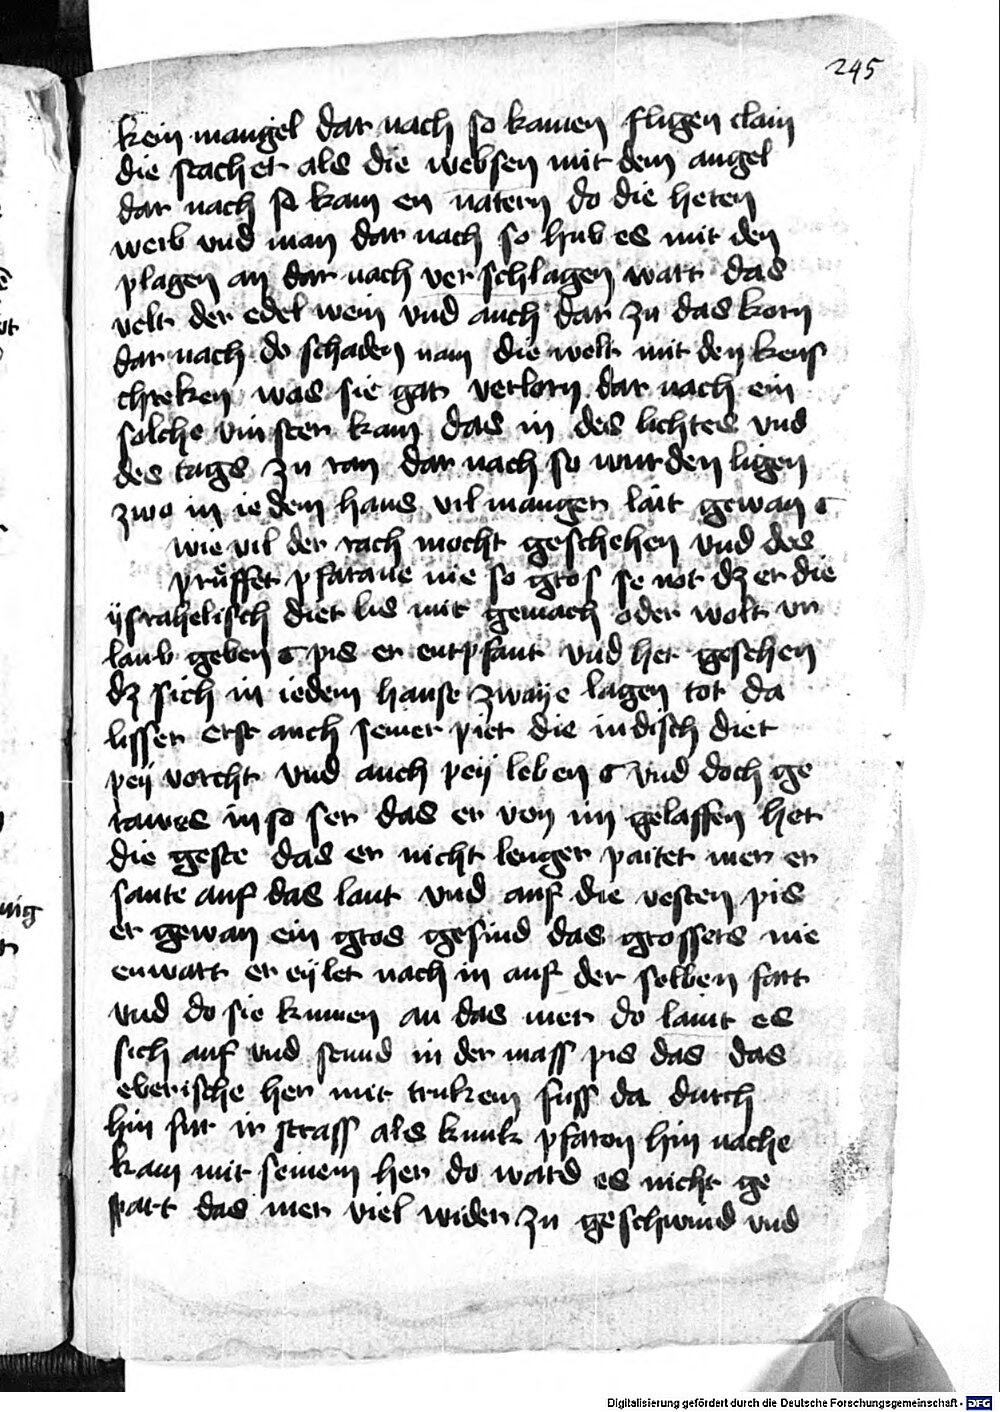 245
kein mangel dar nach so kamen fligen clain
die stachet als die websen mit dem angel
dar nach so kam en natern do die heten
weib vnd man dar nach so hub es mit den
plagen an dar nach ver schlagen wart das
velt der edel wein vnd auch dar zu das korn
dar nach do schaden nam die welt mit den keus
chreken was sie gar verlorn dar nach ein
solche vinster kam das in des lichtes vnd
des tags zu ran dar nach so wurden ligen
zwo in iedem haus vil manger lait gewan
wie vil der rach mocht geschehen vnd des
prüffet pfaraue nie so gros se not dz er die
ysrahelisch diet lis mit gemach oder wolt vr
laub geben pis er entpfant vnd het gesehen
dz sich in iedem hause zwaye lagen tot da
lisser erst auch seiner piet die iudisch diet
pey vorcht vnd auch pey leben vnd doch ge
rawes in so ser das er von im gelassen het
die geste das er nicht lenger paitet mer er
sante auf das lant vnd auf die vesten pis
er gewan ein gros gesind das grossers nie
enwart er eylet nach in auf der selben fart
vnd do sie kumen an das mer do laint es
sich auf vnd stund in der mass pis das das
eberische her mit truken fuss da durch
hin fur ir strass als kunk pfaron hin nache
kam mit seinem her do ward es nicht ge
spart das mer viel wider zu geschwind vnd
Digitalisierung gefördert durch die Deutsche Forschungsgemeinschaft - DFG